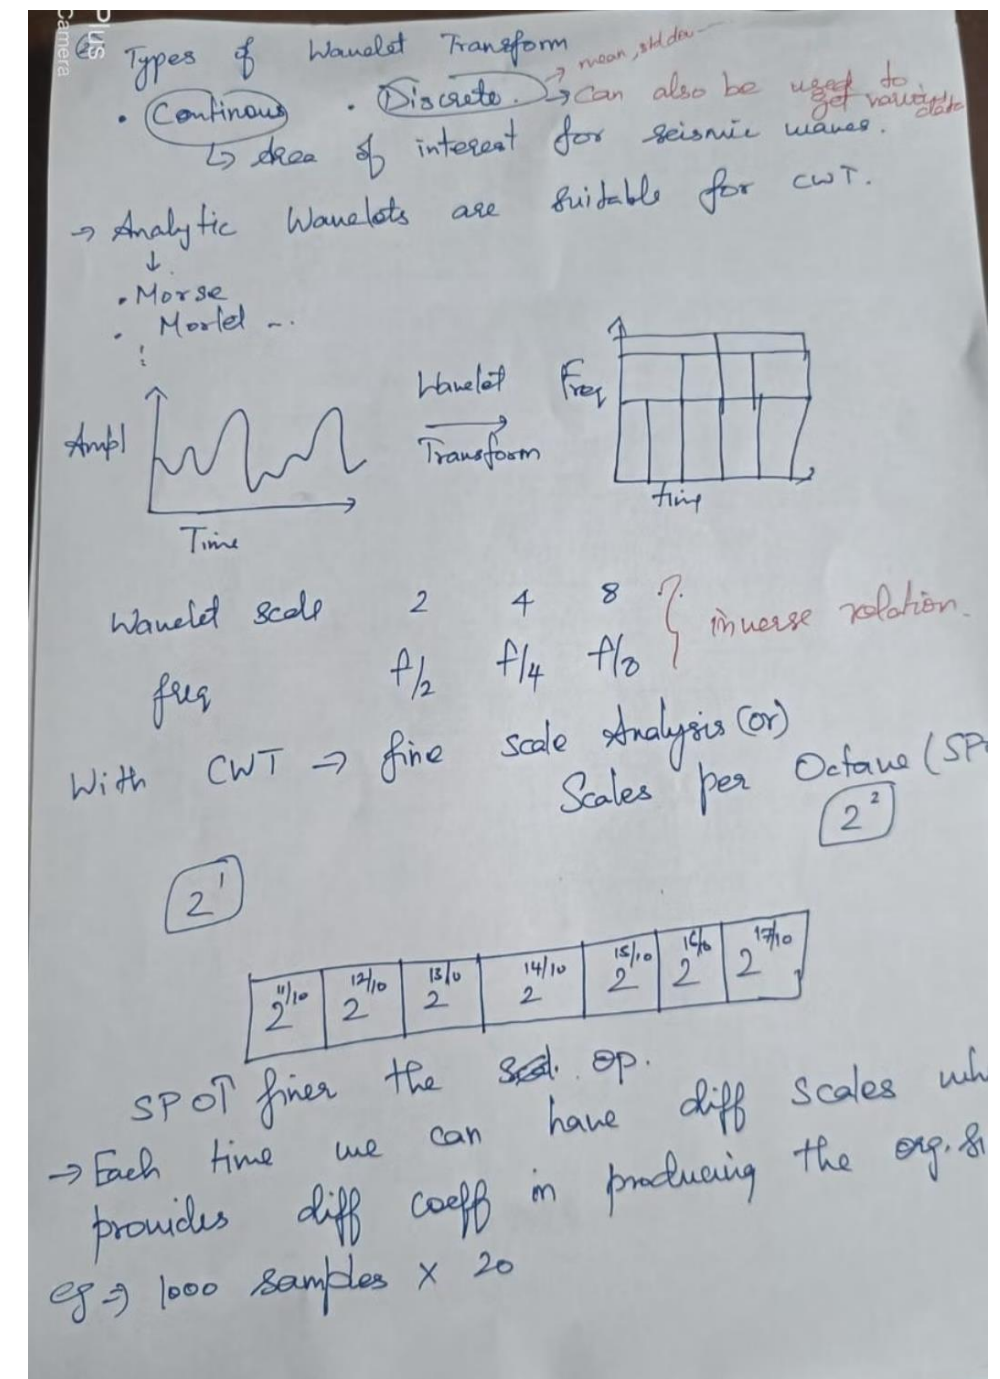 Plus
Camera
② Types of Wavelet Transform
→ mean, std dev
• Continous • Discrete. → Can also be used to
get various data
↳ Area of interest for seismic waves.
→ Analytic Wavelets are suitable for CWT.
↓
• Morse
• Morlet ...
Ampl
Time
Wavelet
Transform
Freq
time
Wavelet scale 2 4 8
freq f/2 f/4 f/8
} inverse relation.
With CWT → fine scale Analysis (or)
Scales per Octave (SP
2^2
2^1
2^11/10 2^12/10 2^13/10 2^14/10 2^15/10 2^16/10 2^17/10
SPO↑ finer the op.
→ Each time we can have diff scales wh
provides diff coeff in producing the org. si
eg ⇒ 1000 samples × 20